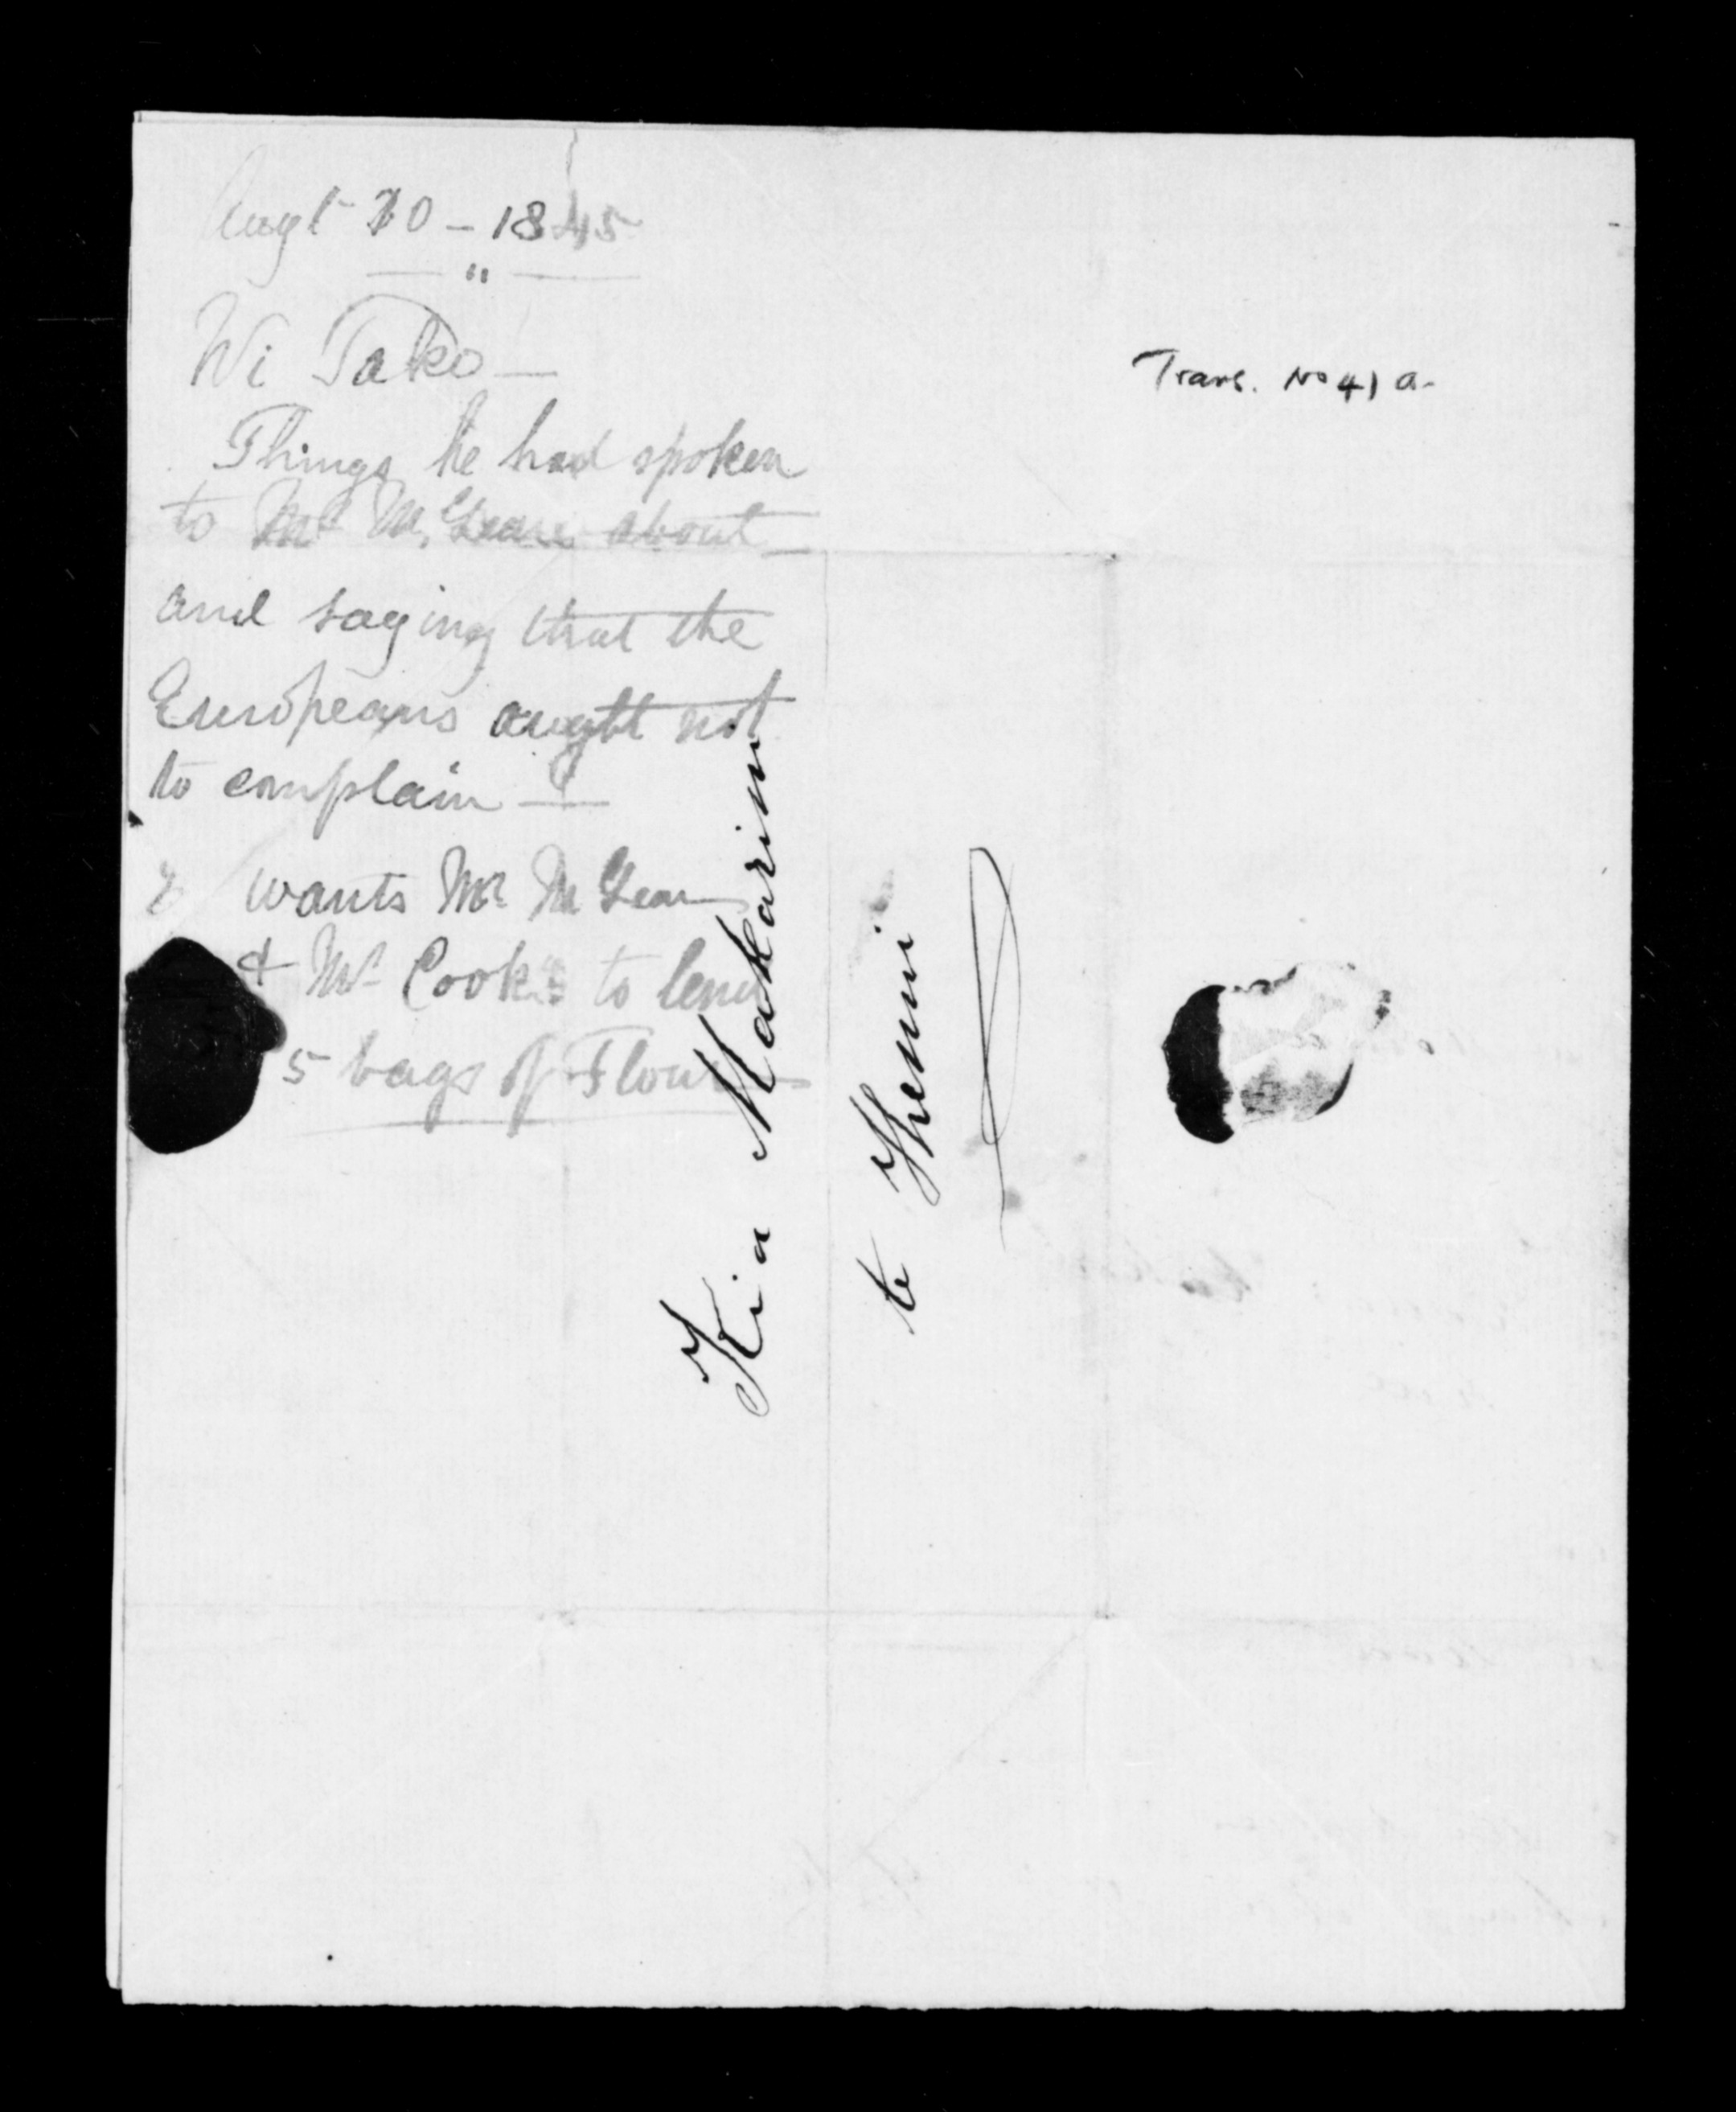 Augt 20 - 1845
"
Wi Tako —
Things he had spoken
to Mr McLean about —
and saying that the
Europeans aught not
to complain —
& wants Mr McLean
& Mr Cook to lend
5 bags of Flour —
Kia Makarini
te Ihenui
Trans. No 41 a.